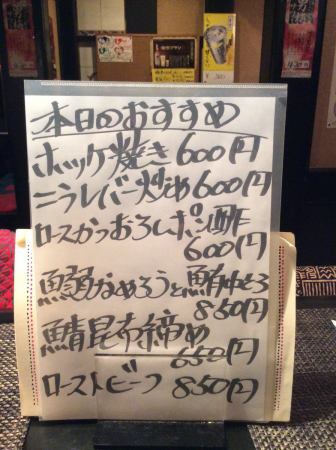 本日のおすすめ
ホッケ焼き 600円
ニラレバー炒め 600円
ロースかつおろしポン酢
600円
鰯なめろうと鮪中とろ
850円
鯖昆布締め
650円
ローストビーフ 850円